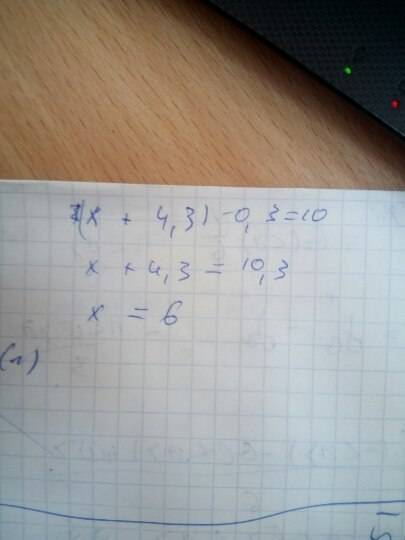 (x + 4,3) - 0,3 = 10
x + 4,3 = 10,3
x = 6
(л)